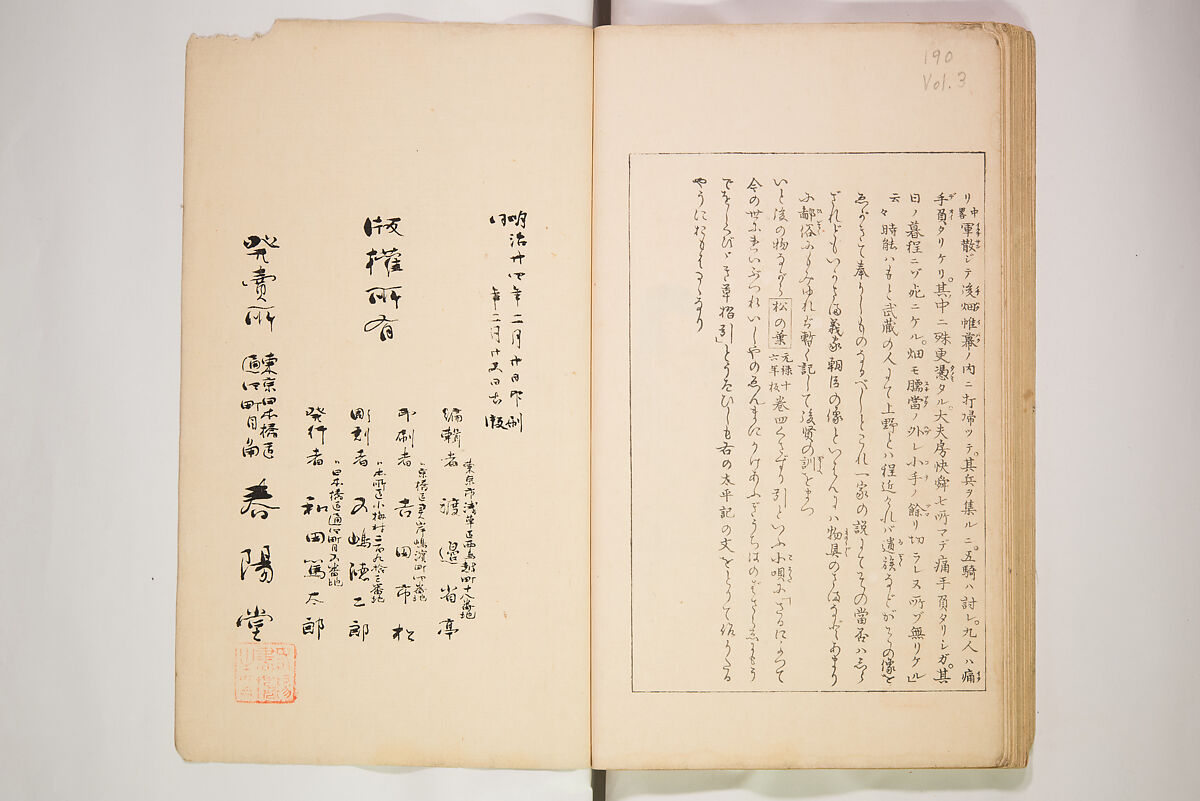 190
Vol.3
リ中畧軍散ジテ後畑帷幕ノ内ニ打帰ツテ。其兵ヲ集ルニ。五騎ハ討レ。九人ハ痛
手負タリケリ。其中ニ殊更憑タル大夫房快舜七所マデ痛手負タリシガ。其
日ノ暮程ニゾ死ニケル。畑モ臑當ノ外レ小手ノ餘リ切ラレヌ所ゾ無リケル」
云々時能ハもと武蔵の人にて上野とハ程近かれバ遺族などがその像を
ゑがきて奉りしものなるべしとこれ一家の説にてその當否ハ
義家朝臣の像といはんにハ物具のさまなどあまり
に鄙俗にもみゆれば暫く記して後賢の訓をまつ
いと後の物ながら松の葉元禄十六年板巻四くさずり引といふ小唄に「さるによつて
今の世
でをしくらべ草摺引」とうたひしも右の太平記の文をとりて作りたる
やうにおもはるゝなり
明治廿四年二月廿日印刷
仝 年二月廿五日出版
版權所有
編輯者 東京市浅草區西鳥越町十八番地 渡邉省亭
印刷者 〃京橋區霊岸嶋濱町四番地 吉田市松
彫刻者 〃本所區小梅村二百九拾三番地 五嶋徳二郎
発行者 〃日本橋區通四町目五番地 和田篤太郎
発賣所 東京日本橋區通四町目角 春陽堂